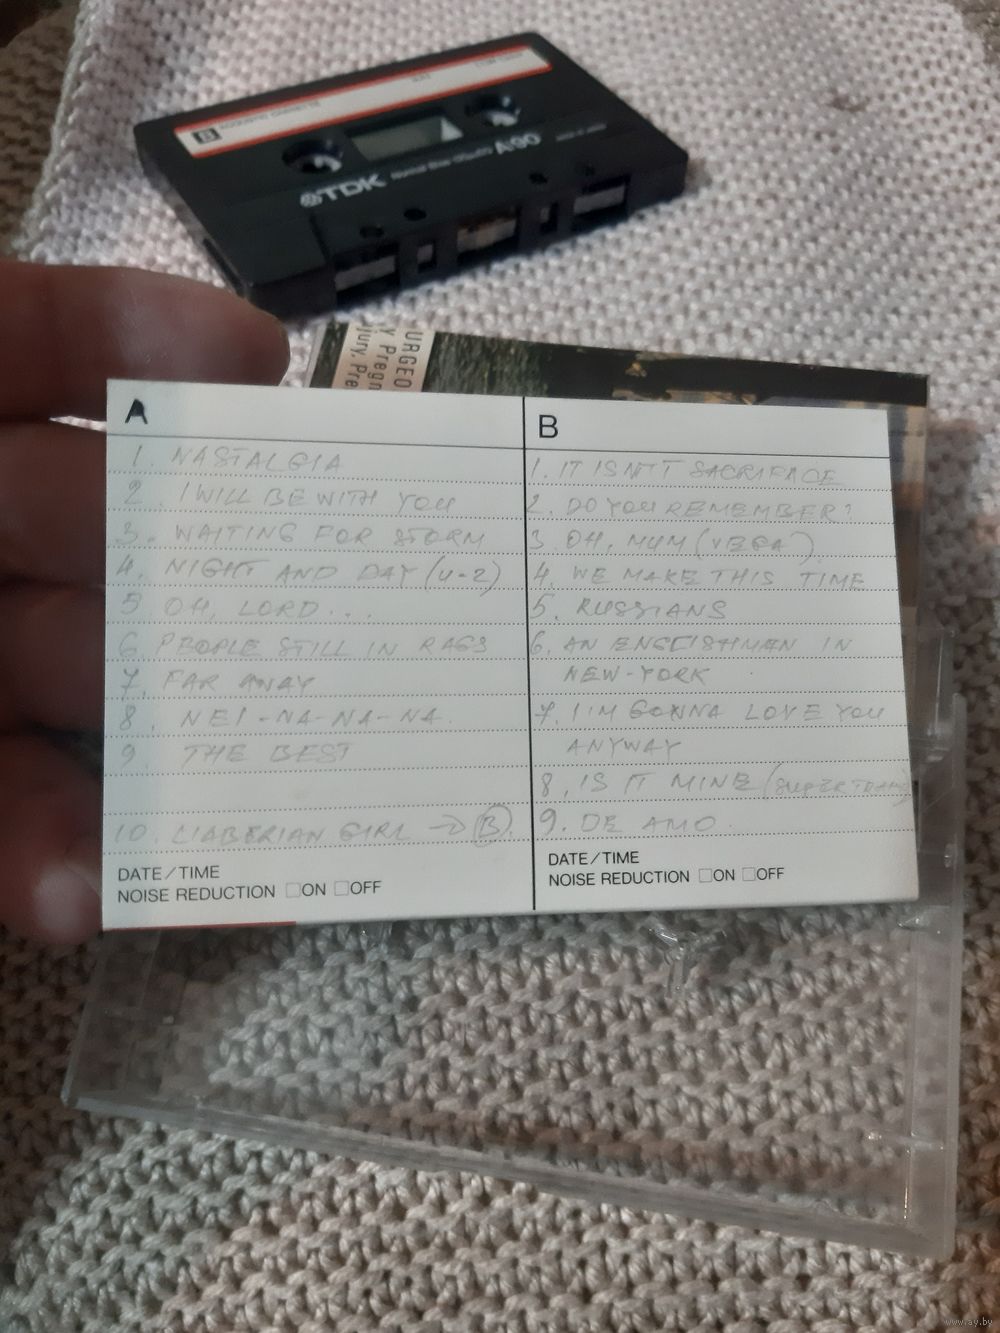 B ACOUSTIC CASSETTE
TDK Normal Bias A90
URGEO
Y Pregn
jury, Pre
A
1. NASTALGIA
2. I WILL BE WITH YOU
3. WAITING FOR STORM
4. NIGHT AND DAY (U-2)
5. OH, LORD...
6. PEOPLE STILL IN RAGS
7. FAR AWAY
8. NEI-NA-NA-NA.
9 THE BEST
10. LIABERIAN GIRL → B.
DATE/TIME
NOISE REDUCTION □ON □OFF
B
1. IT ISN'T SACRIFACE
2. DO YOU REMEMBER?
3 OH, MUM (VEGA)
4. WE MAKE THIS TIME
5. RUSSIANS
6. AN ENGLISHMAN IN
NEW-YORK
7. I'M GONNA LOVE YOU
ANYWAY
8. IS IT MINE (SUPERTRAMP)
9. DE AMO.
DATE/TIME
NOISE REDUCTION □ON □OFF
www.ay.by